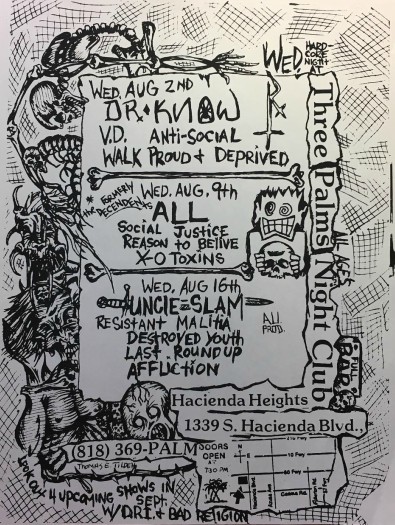 WED, HARD CORE NIGHT AT
Three Palms Night Club
WED, AUG 2ND
DR. KNOW
V.D. ANTI-SOCIAL
WALK PROUD + DEPRIVED
* FORMERLY THE DECENDENTS
WED, AUG, 9th
ALL
SOCIAL JUSTICE
REASON TO BELIVE
X-O TOXINS
WED. AUG 16th
UNCLE SLAM
RESISTANT MALITIA
DESTROYED YOUTH
LAST ROUNDUP
AFFLICTION
ALL AGES
FULL BAR
Hacienda Heights
1339 S. Hacienda Blvd.,
(818) 369-PALM
DOORS OPEN AT 7:30 PM
THOMAS E. TILDEN
N
E
10 Fwy
60 Fwy
LOOK OUT 4 UPCOMING SHOWS IN SEPT.
W/ D.R.I. & BAD RELIGION